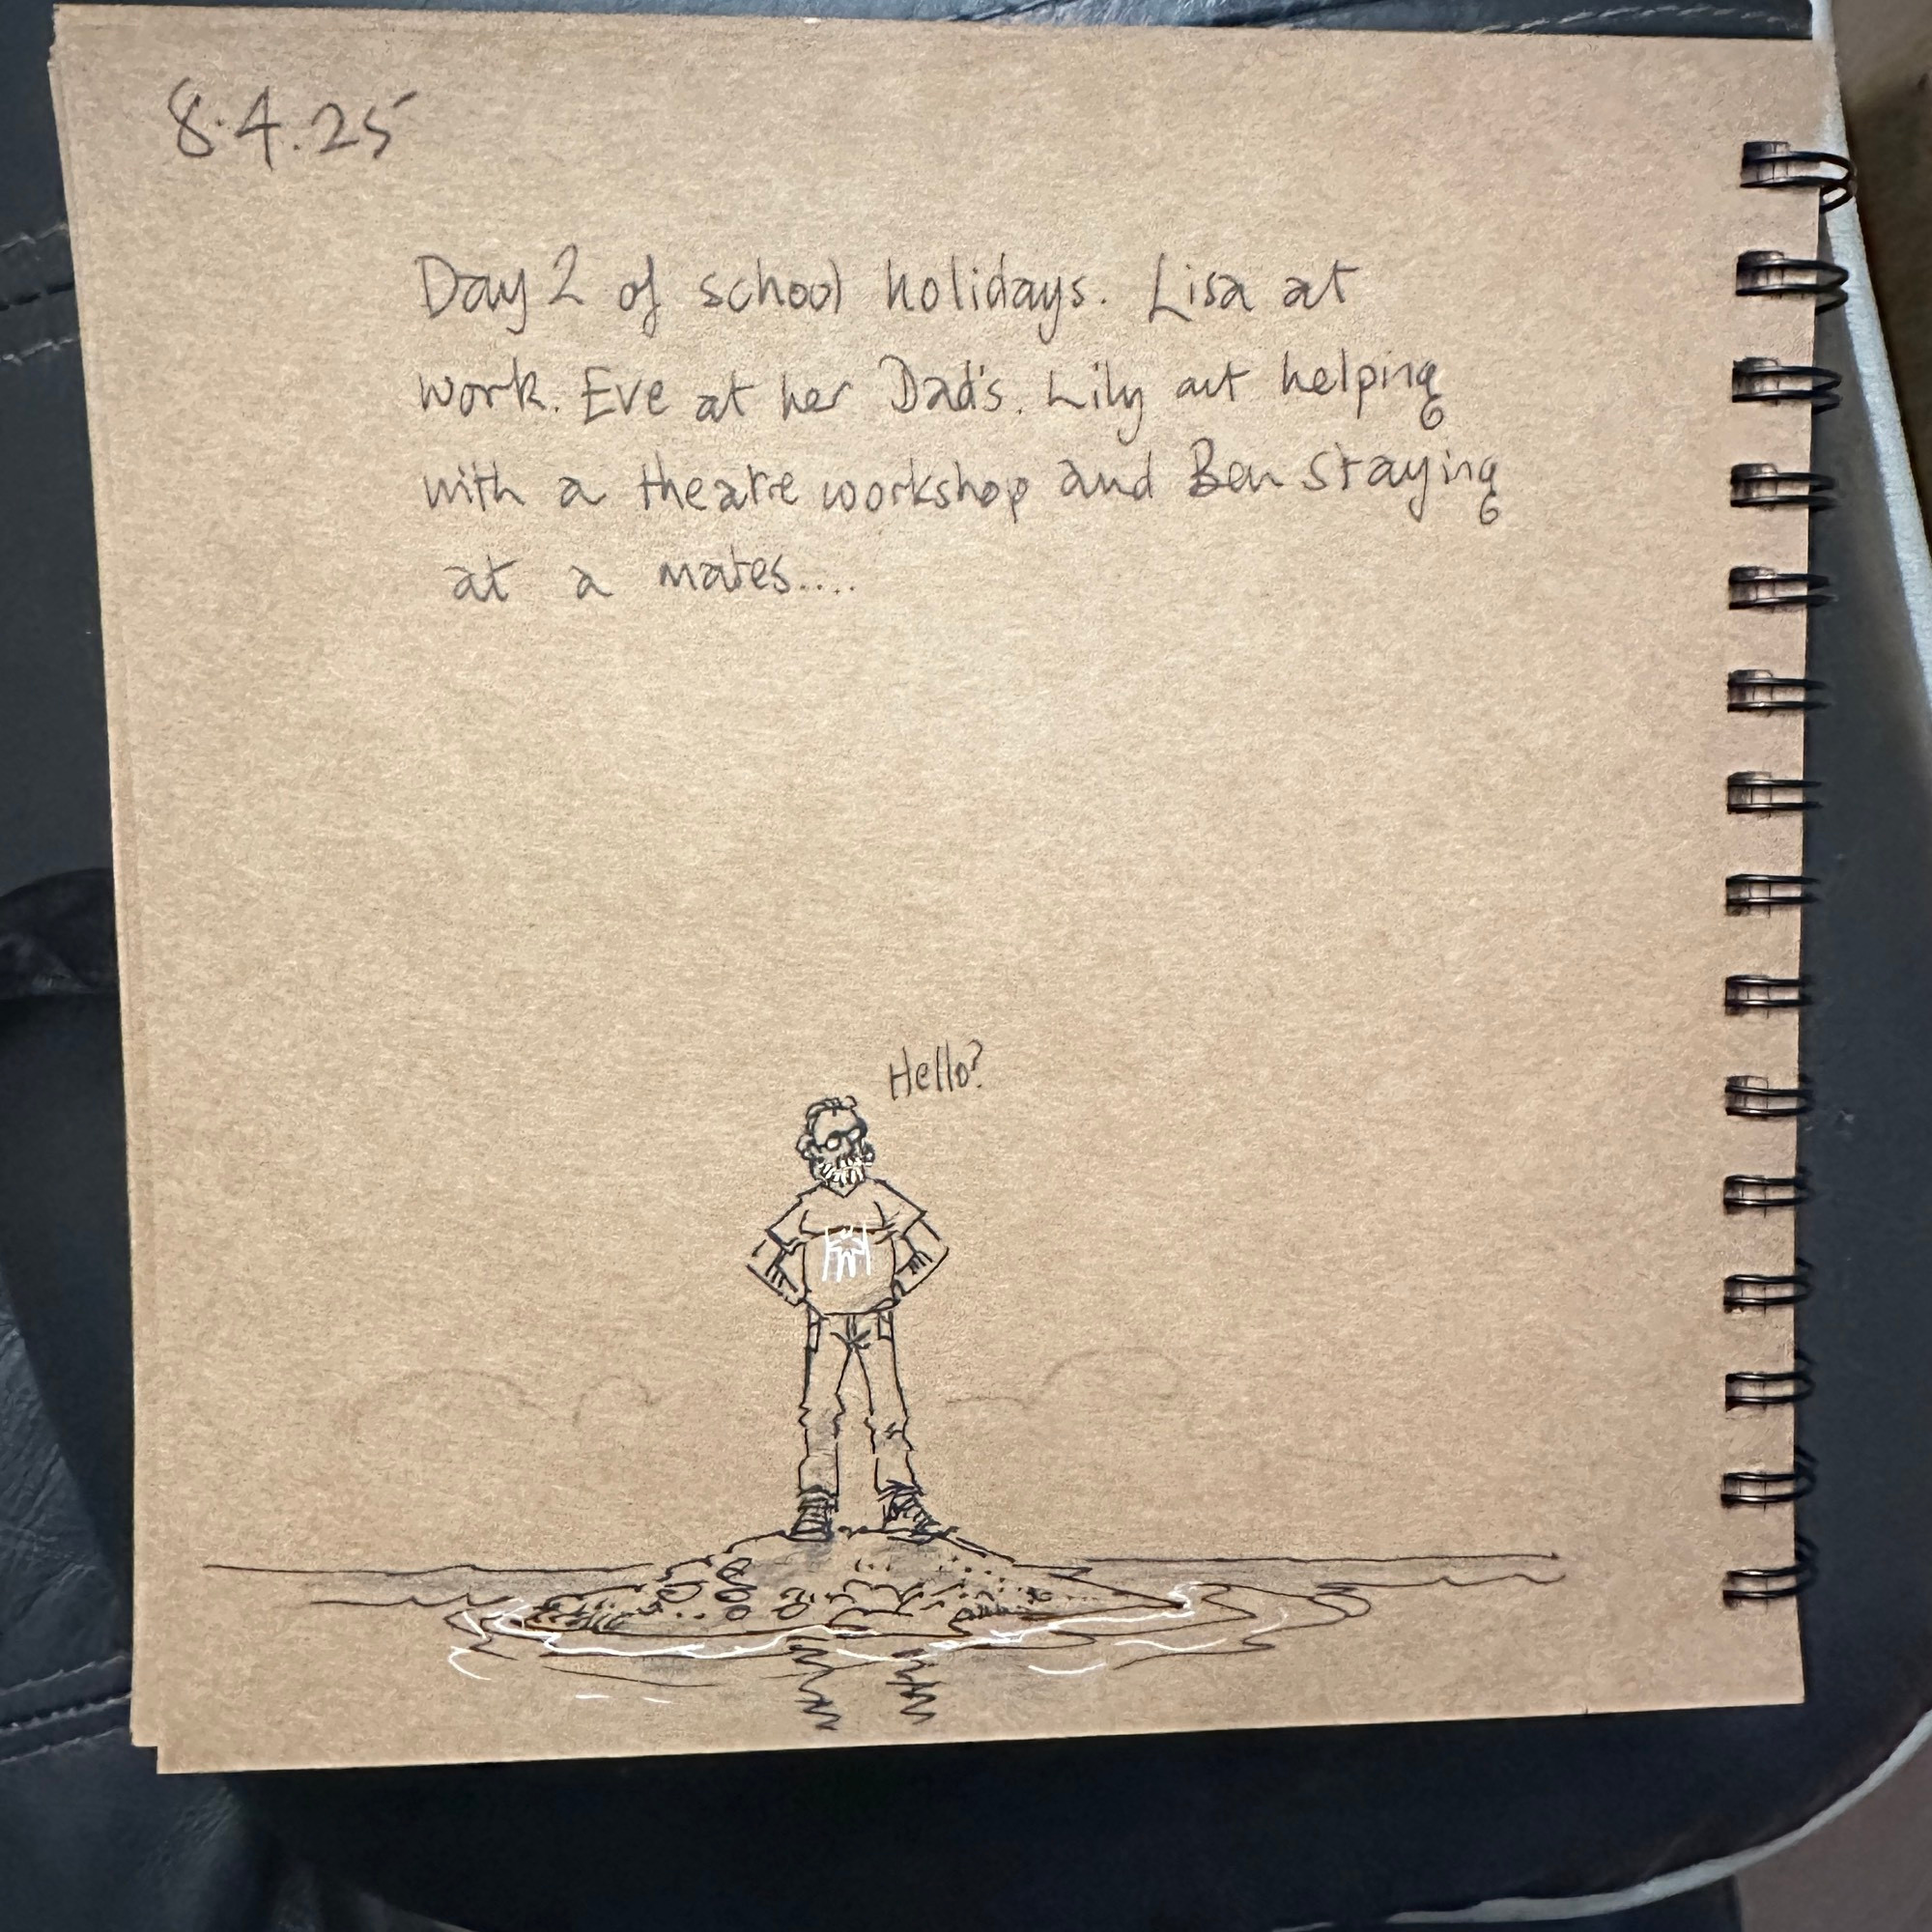 8.4.25
Day 2 of school holidays. Lisa at
work. Eve at her Dad's. Lily out helping
with a theatre workshop and Ben staying
at a mates....
Hello?